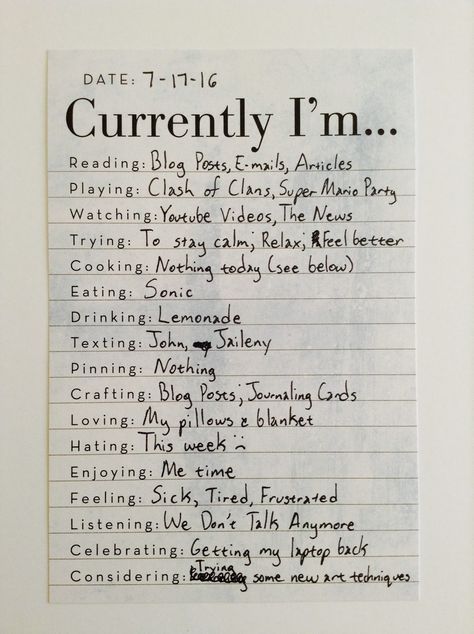 DATE: 7-17-16
Currently I'm...
Reading: Blog Posts, E-mails, Articles
Playing: Clash of Clans, Super Mario Party
Watching: Youtube Videos, The News
Trying: To stay calm; Relax; Feel better
Cooking: Nothing today (see below)
Eating: Sonic
Drinking: Lemonade
Texting: John, Jaileny
Pinning: Nothing
Crafting: Blog Posts; Journaling Cards
Loving: My pillows & blanket
Hating: This week :(
Enjoying: Me time
Feeling: Sick, Tired, Frustrated
Listening: We Don't Talk Anymore
Celebrating: Getting my laptop back
Considering: Trying some new art techniques